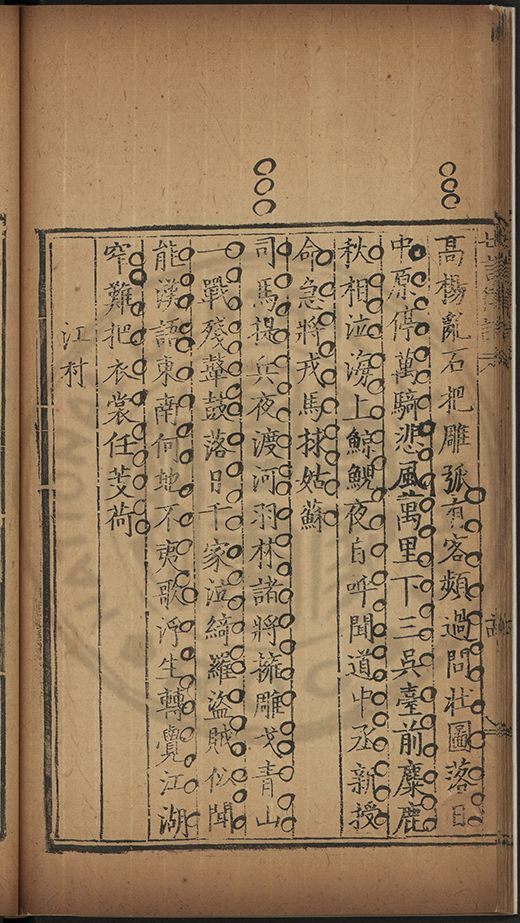 高楊亂石把雕弧有客頻過問壯圖落日
中原停萬騎悲風萬里下三吳臺前麋鹿
秋相泣海上鯨鯢夜自呼聞道中丞新授
命急將戎馬捄姑蘇
司馬提兵夜渡河羽林諸將擁雕戈青山
一戰殘鼙鼓落日千家泣綺羅盜賊似聞
能漢語東南何地不夷歌浮生轉覺江湖
窄難把衣裳任芰荷
江村